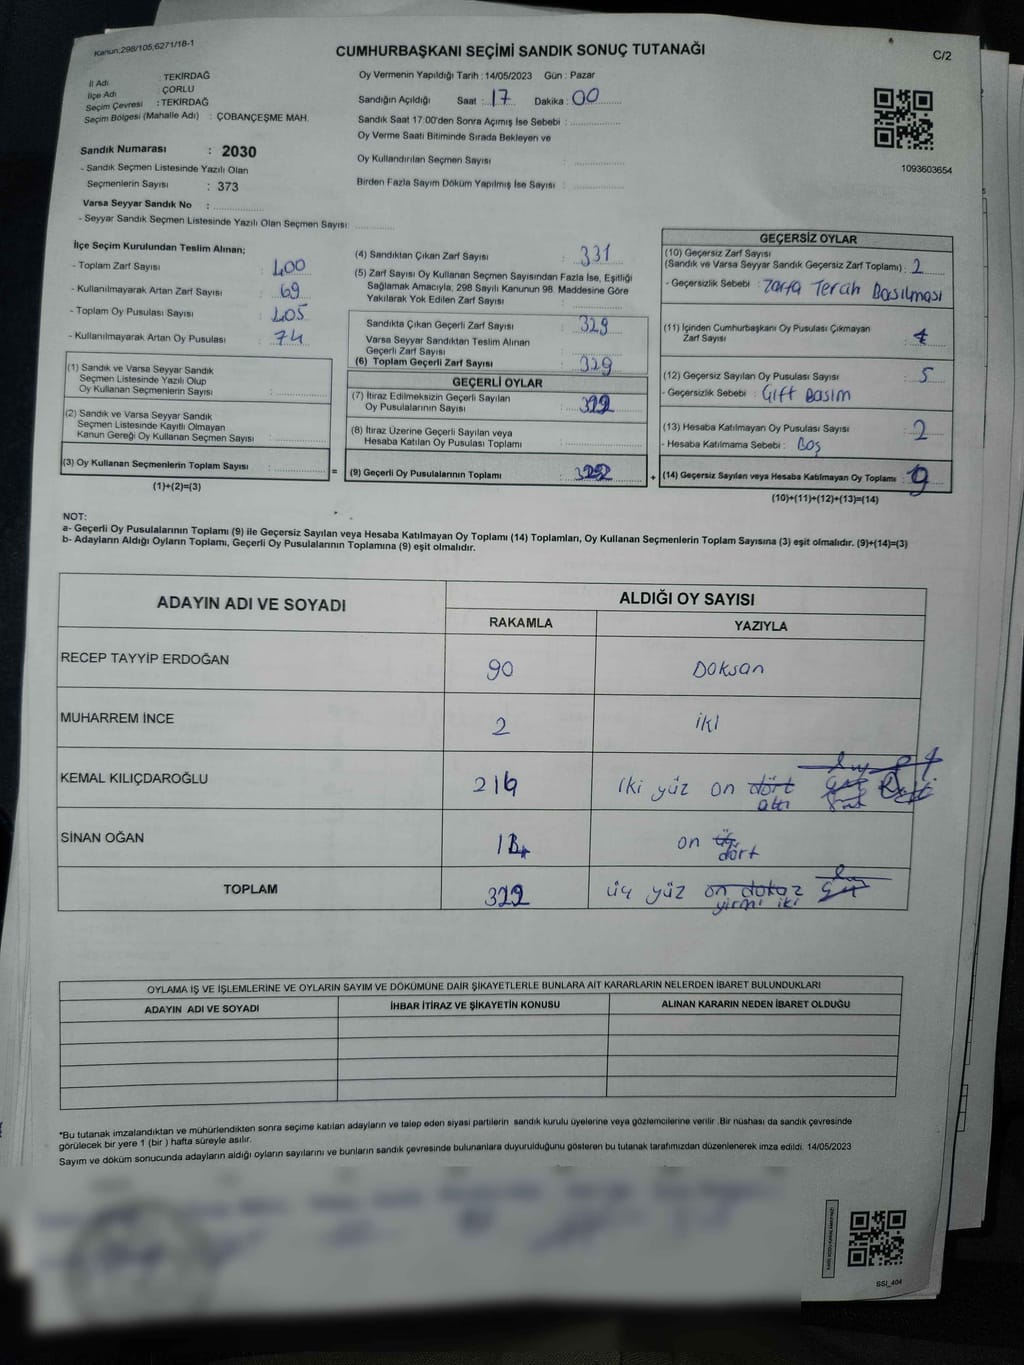 Kanun:298/105,6271/18-1
CUMHURBAŞKANI SEÇİMİ SANDIK SONUÇ TUTANAĞI
C/2
İl Adı : TEKİRDAĞ
İlçe Adı : ÇORLU
Seçim Çevresi : TEKİRDAĞ
Seçim Bölgesi (Mahalle Adı) : ÇOBANÇEŞME MAH.
Oy Vermenin Yapıldığı Tarih : 14/05/2023 Gün : Pazar
Sandığın Açıldığı Saat : 17 Dakika : 00
Sandık Saat 17:00'den Sonra Açımış İse Sebebi :
Oy Verme Saati Bitiminde Sırada Bekleyen ve
Oy Kullandırılan Seçmen Sayısı :
Birden Fazla Sayım Döküm Yapılmış İse Sayısı :
1093603654
Sandık Numarası : 2030
- Sandık Seçmen Listesinde Yazılı Olan
Seçmenlerin Sayısı : 373
Varsa Seyyar Sandık No :
- Seyyar Sandık Seçmen Listesinde Yazılı Olan Seçmen Sayısı:
İlçe Seçim Kurulundan Teslim Alınan;
- Toplam Zarf Sayısı : 400
- Kullanılmayarak Artan Zarf Sayısı : 69
- Toplam Oy Pusulası Sayısı : 405
- Kullanılmayarak Artan Oy Pusulası : 74
(1) Sandık ve Varsa Seyyar Sandık
Seçmen Listesinde Yazılı Olup
Oy Kullanan Seçmenlerin Sayısı :
(2) Sandık ve Varsa Seyyar Sandık
Seçmen Listesinde Kayıtlı Olmayan
Kanun Gereği Oy Kullanan Seçmen Sayısı :
(3) Oy Kullanan Seçmenlerin Toplam Sayısı : =
(1)+(2)=(3)
(4) Sandıktan Çıkan Zarf Sayısı : 331
(5) Zarf Sayısı Oy Kullanan Seçmen Sayısından Fazla İse, Eşitliği
Sağlamak Amacıyla, 298 Sayılı Kanunun 98. Maddesine Göre
Yakılarak Yok Edilen Zarf Sayısı :
Sandıkta Çıkan Geçerli Zarf Sayısı : 329
Varsa Seyyar Sandıktan Teslim Alınan
Geçerli Zarf Sayısı :
(6) Toplam Geçerli Zarf Sayısı : 329
GEÇERLİ OYLAR
(7) İtiraz Edilmeksizin Geçerli Sayılan
Oy Pusulalarının Sayısı : 322
(8) İtiraz Üzerine Geçerli Sayılan veya
Hesaba Katılan Oy Pusulası Toplamı :
(9) Geçerli Oy Pusulalarının Toplamı : 322 +
GEÇERSİZ OYLAR
(10) Geçersiz Zarf Sayısı
(Sandık ve Varsa Seyyar Sandık Geçersiz Zarf Toplamı) : 2
- Geçersizlik Sebebi : Zarfa Tercih Basılması
(11) İçinden Cumhurbaşkanı Oy Pusulası Çıkmayan
Zarf Sayısı :
(12) Geçersiz Sayılan Oy Pusulası Sayısı : 5
- Geçersizlik Sebebi : Çift Basım
(13) Hesaba Katılmayan Oy Pusulası Sayısı : 2
- Hesaba Katılmama Sebebi : Boş
(14) Geçersiz Sayılan veya Hesaba Katılmayan Oy Toplamı : 9
(10)+(11)+(12)+(13)=(14)
NOT:
a- Geçerli Oy Pusulalarının Toplamı (9) ile Geçersiz Sayılan veya Hesaba Katılmayan Oy Toplamı (14) Toplamları, Oy Kullanan Seçmenlerin Toplam Sayısına (3) eşit olmalıdır. (9)+(14)=(3)
b- Adayların Aldığı Oyların Toplamı, Geçerli Oy Pusulalarının Toplamına (9) eşit olmalıdır.
ADAYIN ADI VE SOYADI ALDIĞI OY SAYISI
RAKAMLA YAZIYLA
RECEP TAYYİP ERDOĞAN 90 Doksan
MUHARREM İNCE 2 iki
KEMAL KILIÇDAROĞLU 216 iki yüz on dört
altı
SİNAN OĞAN 14 on üç
dört
TOPLAM 322 üç yüz on dokuz
yirmi iki
OYLAMA İŞ VE İŞLEMLERİNE VE OYLARIN SAYIM VE DÖKÜMÜNE DAİR ŞİKAYETLERLE BUNLARA AİT KARARLARIN NELERDEN İBARET BULUNDUKLARI
ADAYIN ADI VE SOYADI İHBAR İTİRAZ VE ŞİKAYETİN KONUSU ALINAN KARARIN NEDEN İBARET OLDUĞU
*Bu tutanak imzalandıktan ve mühürlendikten sonra seçime katılan adayların ve talep eden siyasi partilerin sandık kurulu üyelerine veya gözlemcilerine verilir .Bir nüshası da sandık çevresinde
görülecek bir yere 1 (bir ) hafta süreyle asılır.
Sayım ve döküm sonucunda adayların aldığı oyların sayılarını ve bunların sandık çevresinde bulunanlara duyurulduğunu gösteren bu tutanak tarafımızdan düzenlenerek imza edildi. 14/05/2023
SSI_404